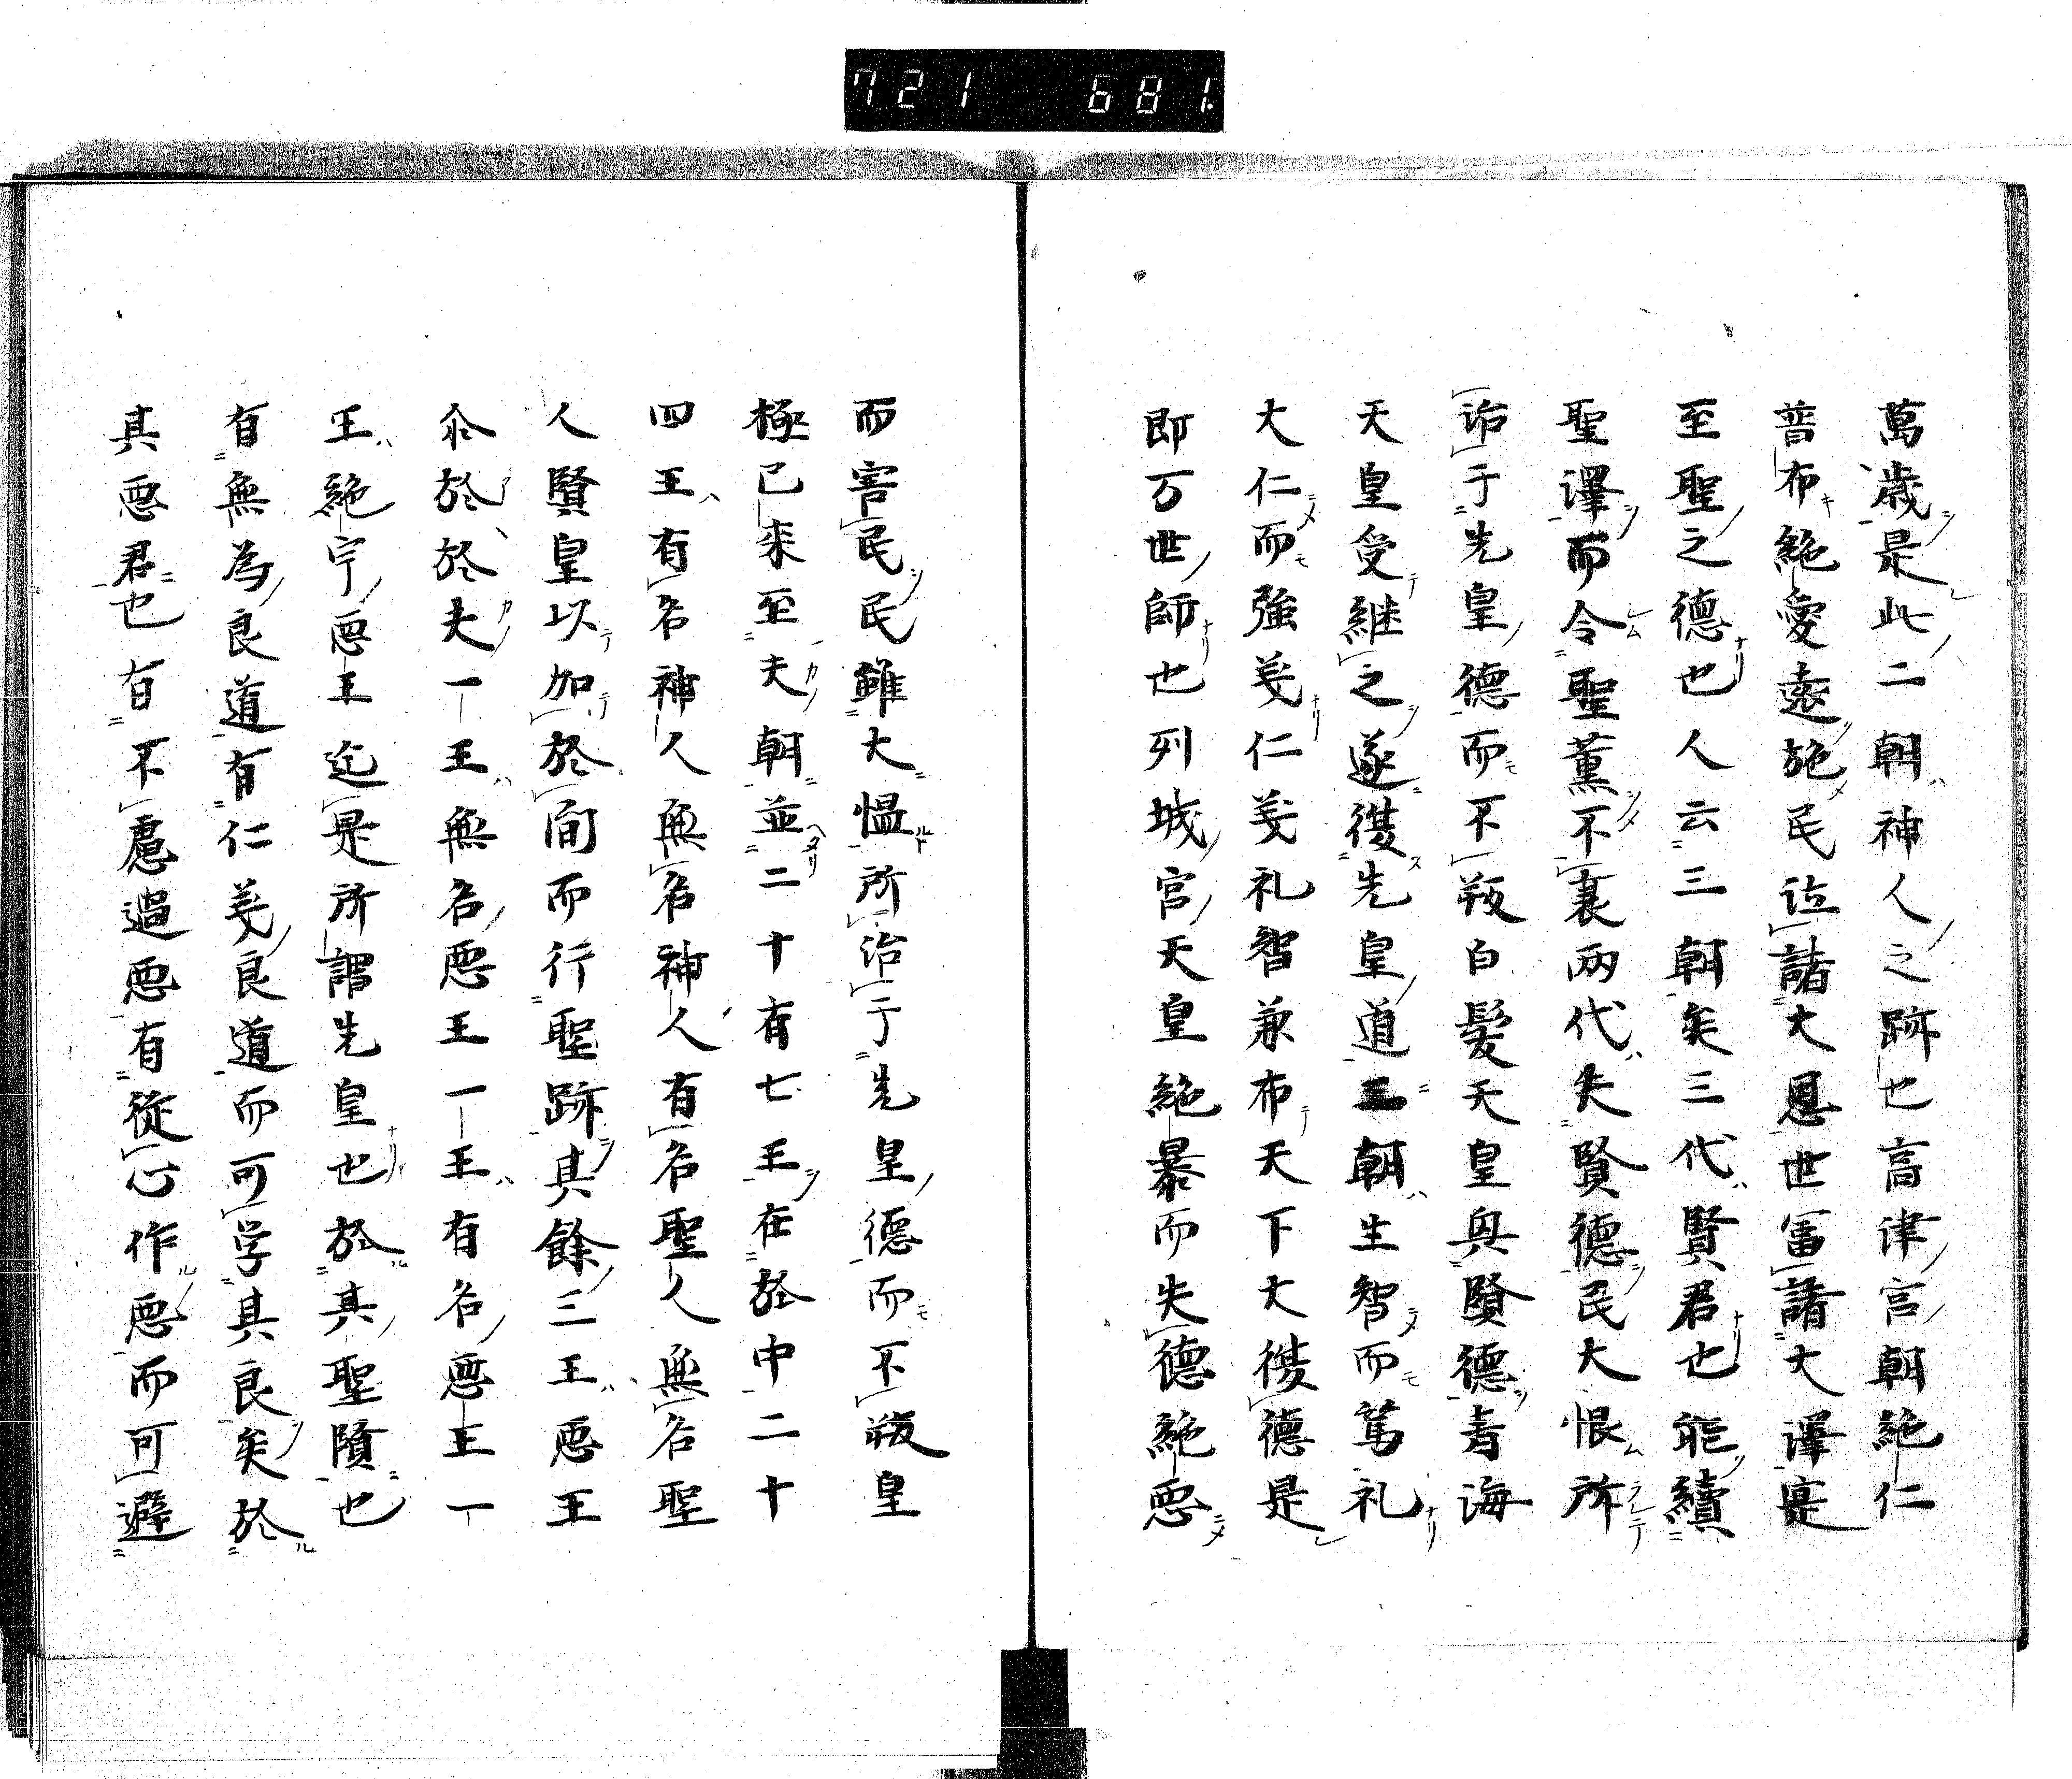 721 681
萬歳是此二朝神人之跡也高津宮朝絶仁
普布絶愛遠施民位諸大恩世富諸大澤是
至聖之德也人云三朝矣三代賢君也能續
聖澤而令聖薫不衰兩代失賢德民大恨所
治于先皇德而不叛白髪天皇與賢德青海
天皇受継之遂復先皇道三朝生智而篤礼
大仁而強美仁義礼智兼布天下大復德是
即万世師也列城宮天皇絶暴而失德絶悪
而害民民雖大慍所治于先皇德而不叛皇
極已来至夫朝並二十有七王在於中二十
四王有名神人無名神人有名聖人無名聖
人賢皇以加於間而行聖跡其餘三王悪王
尒於於夫一王無名悪王一王有名悪王一
王絶宇悪王迄是所謂先皇也於其聖賢也
有無為良道有仁義良道而可学其良矣於
其悪君也有不慮過悪有従心作悪而可避